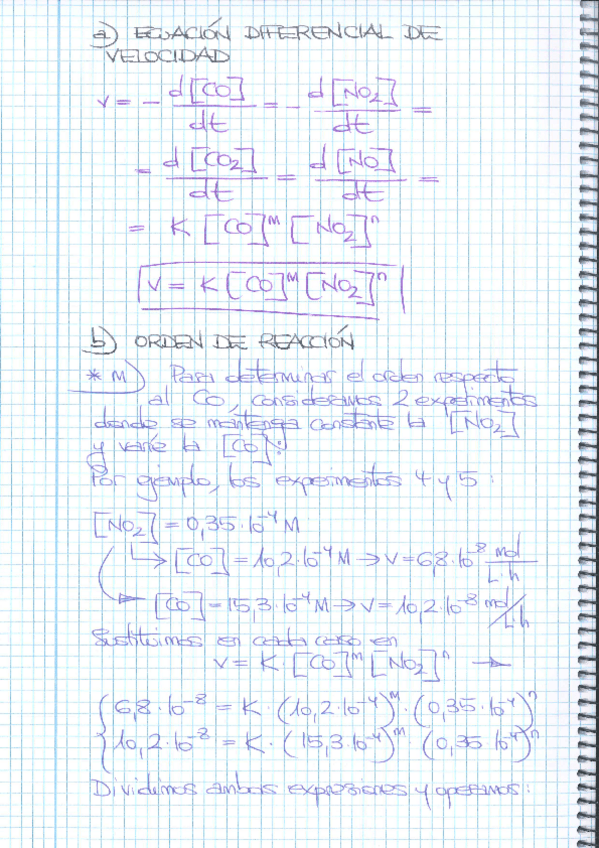 a) ECUACIÓN DIFERENCIAL DE
VELOCIDAD
v = - d[CO]/dt = - d[NO₂]/dt =
= d[CO₂]/dt = d[NO]/dt =
= K [CO]ᵐ [NO₂]ⁿ
v = K [CO]ᵐ [NO₂]ⁿ
b) ORDEN DE REACCIÓN
* m) Para determinar el orden respecto
al CO, consideramos 2 experimentos
donde se mantenga constante la [NO₂]
y varíe la [CO]:
Por ejemplo, los experimentos 4 y 5:
[NO₂] = 0,35·10⁻⁴ M
→ [CO] = 10,2·10⁻⁴ M → v = 6,8·10⁻⁸ mol/L·h
→ [CO] = 15,3·10⁻⁴ M → v = 10,2·10⁻⁸ mol/L·h
Sustituimos en cada caso en
v = K·[CO]ᵐ [NO₂]ⁿ →
{ 6,8·10⁻⁸ = K·(10,2·10⁻⁴)ᵐ·(0,35·10⁻⁴)ⁿ
{ 10,2·10⁻⁸ = K·(15,3·10⁻⁴)ᵐ·(0,35·10⁻⁴)ⁿ
Dividimos ambas expresiones y operamos: